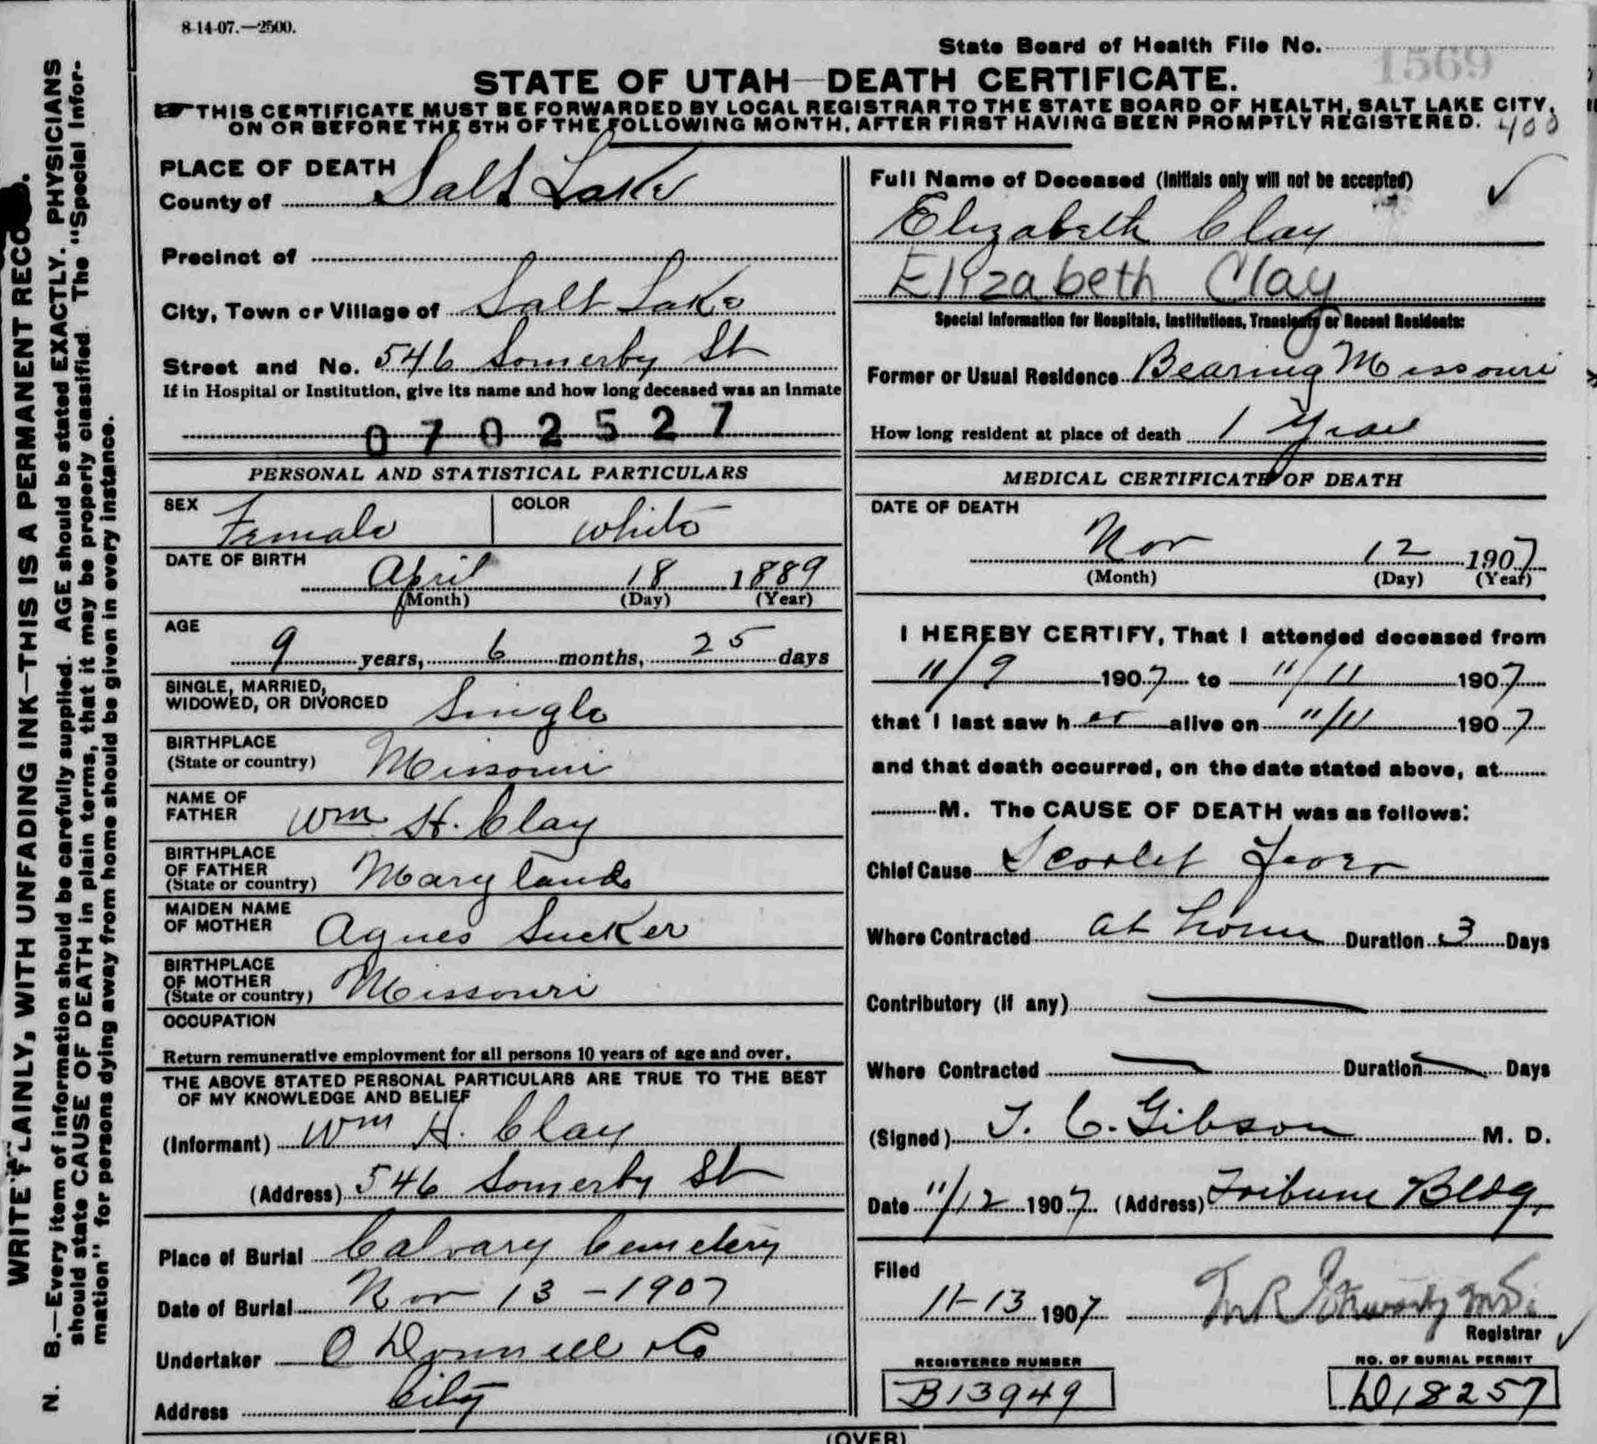 8-14-07.—2500.
State Board of Health File No. 1569
STATE OF UTAH—DEATH CERTIFICATE.
THIS CERTIFICATE MUST BE FORWARDED BY LOCAL REGISTRAR TO THE STATE BOARD OF HEALTH, SALT LAKE CITY,
ON OR BEFORE THE 5TH OF THE FOLLOWING MONTH, AFTER FIRST HAVING BEEN PROMPTLY REGISTERED.
400
WRITE PLAINLY, WITH UNFADING INK—THIS IS A PERMANENT RECORD.
N. B.—Every item of information should be carefully supplied. AGE should be stated EXACTLY. PHYSICIANS
should state CAUSE OF DEATH in plain terms, that it may be properly classified. The "Special Infor-
mation" for persons dying away from home should be given in every instance.
PLACE OF DEATH
County of Salt Lake
Precinct of
City, Town or Village of Salt Lake
Street and No. 546 Somerby St
If in Hospital or Institution, give its name and how long deceased was an inmate
0702527
PERSONAL AND STATISTICAL PARTICULARS
SEX Female COLOR White
DATE OF BIRTH April 18 1889
(Month) (Day) (Year)
AGE
9 years, 6 months, 25 days
SINGLE, MARRIED,
WIDOWED, OR DIVORCED Single
BIRTHPLACE
(State or country) Missouri
NAME OF
FATHER Wm H. Clay
BIRTHPLACE
OF FATHER
(State or country) Maryland
MAIDEN NAME
OF MOTHER Agnes Sucker
BIRTHPLACE
OF MOTHER
(State or country) Missouri
OCCUPATION
Return remunerative employment for all persons 10 years of age and over.
THE ABOVE STATED PERSONAL PARTICULARS ARE TRUE TO THE BEST
OF MY KNOWLEDGE AND BELIEF
(Informant) Wm H. Clay
(Address) 546 Somerby St
Place of Burial Calvary Cemetery
Date of Burial Nov 13 - 1907
Undertaker O Donnell & Co
Address City
Full Name of Deceased (Initials only will not be accepted)
Elizabeth Clay
Elizabeth Clay
Special Information for Hospitals, Institutions, Transients or Recent Residents:
Former or Usual Residence Bearing Missouri
How long resident at place of death 1 Year
MEDICAL CERTIFICATE OF DEATH
DATE OF DEATH
Nov 12 1907
(Month) (Day) (Year)
I HEREBY CERTIFY, That I attended deceased from
11/9 1907 to 11/11 1907
that I last saw her alive on 11/11 1907
and that death occurred, on the date stated above, at
M. The CAUSE OF DEATH was as follows:
Chief Cause Scarlet Fever
Where Contracted at home Duration 3 Days
Contributory (if any) —
Where Contracted — Duration — Days
(Signed) T. C. Gibson M. D.
Date 11/12 1907 (Address) Tribune Bldg.
Filed
11-13 1907
Registrar
REGISTERED NUMBER
B13949
NO. OF BURIAL PERMIT
D18257
(OVER)